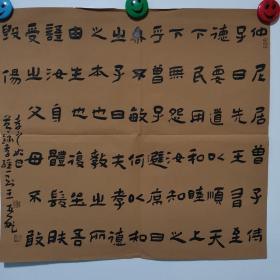 仲尼居曾子侍
子曰先王有至
德要道以順天
下民用和睦上
下無怨汝知之
乎曾子避席曰
參不敏何足以
知之子曰夫孝德
之本也教之所
由生也復坐吾
語汝身體髮膚
受之父母不敢
毀傷